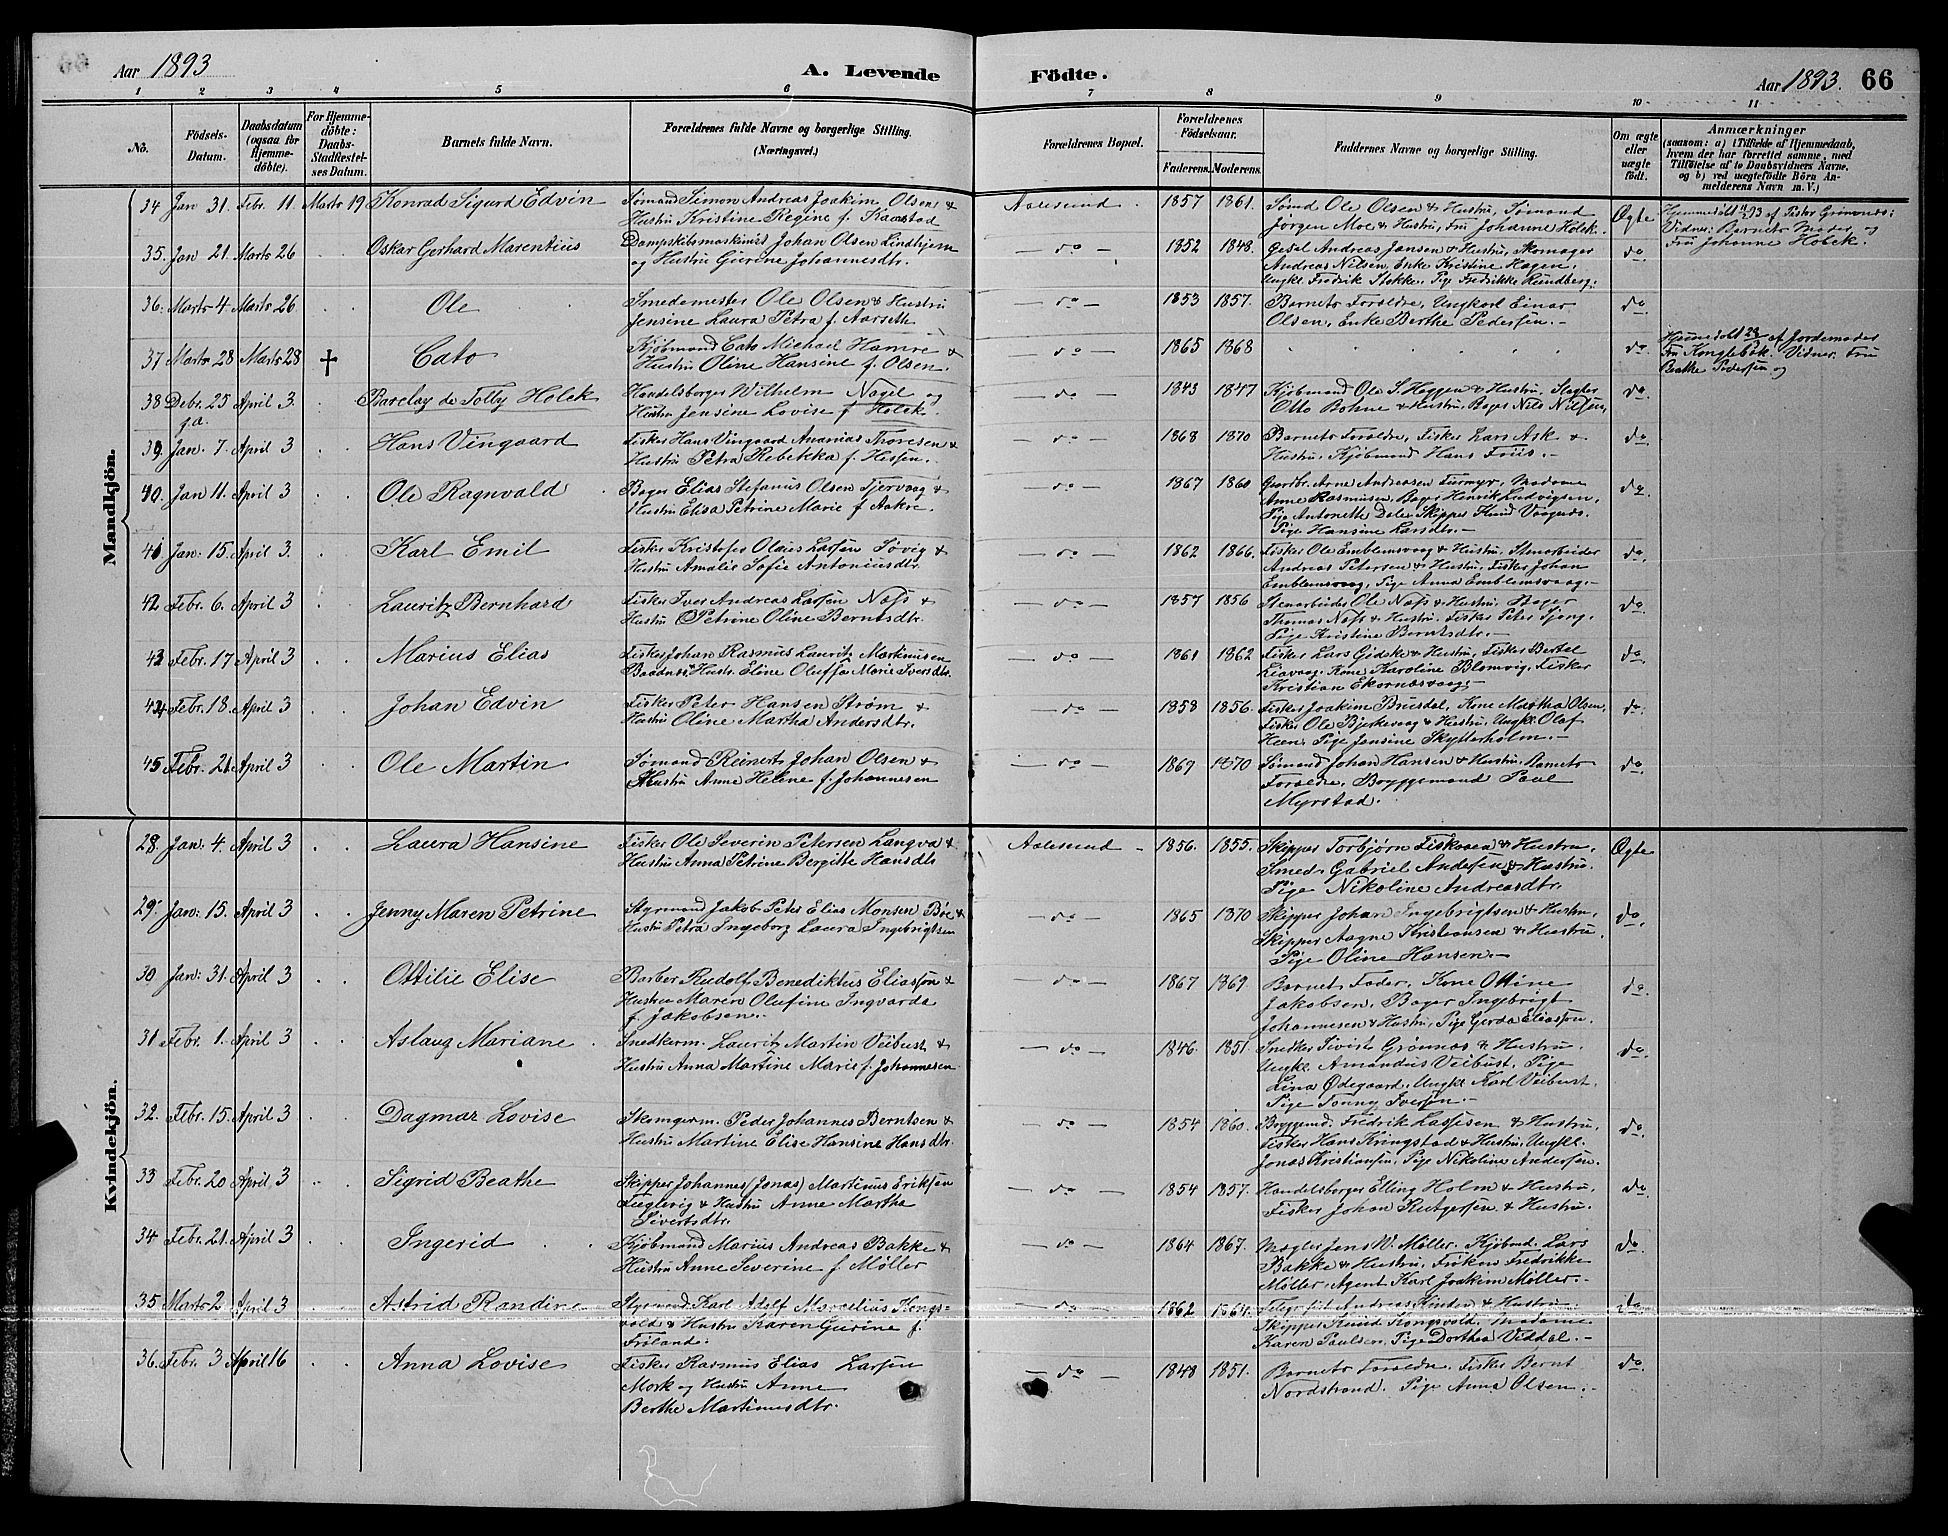 Aar 1893 A. Levende Fødte. Aar 1893. 66
1 2 3 4 5 6 7 8 9 10 11
No. Fødsels-Datum. Daabsdatum (ogsaa for Hjemmedøbte). For Hjemmedøbte: Daabs-Stadfæstelses Datum. Barnets fulde Navn. Forældrenes fulde Navne og borgerlige Stilling. (Næringsvei.) Forældrenes Bopæl. Forældrenes Fødselsaar. Faderens. Moderens. Faddernes Navne og borgerlige Stilling. Om ægte eller uægte født. Anmærkninger (saasom: a) i Tilfælde af Hjemmedaab, hvem der har forrettet samme, med Tilføielse af to Daabsvidners Navne, og b) ved uægtefødte Børn Anmelderens Navn m. V.)
Mandkjøn.
34 Jan 31. Febr. 11. Marts 19 Konrad Sigurd Edvin Sømand Simon Andreas Joakim Olsen & Aalesund 1857 1861. Sømd Ole Olsen & Hustru, Sømand Ægte Hjemmedøbt 11/2 93 af Pastor
Hustru Kristine Regine f. Jørgen Moe & Hustru, Fru Johanne Holck. Vidner: Barnets Moder og
35. Jan 21. Marts 26 Oskar Gerhard Marentius Dampskibsmaskinist Johan Olsen Lindhjem do 1852 1848. Gesel Andreas Jansen & Hustru, Skomager do Fru Johanne Holck.
og Hustru Gjerine Johannesdtr. Andreas Nilsen, Enke Kristine Hagen,
Ungkl Fredrik Stokke, Pige Fredrikke Rundberg.
36. Marts 4. Marts 26 Ole Smedemester Ole Olsen & Hustru do 1853 1857. Barnets Forældre, Ungkarl Einar do
Jensine Laura Petra f. Aarseth Olsen, Enke Berthe Pedersen.
37 Marts 28 Marts 28 † Cato Kjøbmand Cato Michael Hamre & do 1865 1868 do Hjemmedøbt 28/3 af Jordemoder
Hustru Oline Hansine f. Olsen. Fru Vidner: Fru
Beathe Pedersen og
38 Debr. 25 April 3. Barclay de Tolly Holck Handelsborger Wilhelm Nagel og do 1843 1847 Kjøbmand Ole S. Heggen & Hustru, Slagter do
Hustru Jensine Lovise f Holck. Otto Bohne & Hustru, Bager Nils Nilsen.
39 Jan. 7. April 3 Hans Vingaard Fisker Hans Vingaard Ananias Thoresen & do 1868 1870 Barnets Forældre, Fisker Lars Ask & do
Hustru Petra Rebekka f. Hessen. Hustru, Kjøbmand Hans Friis.
40. Jan 11. April 3 Ole Ragnvald Bager Elias Stefanus Olsen Tjervaag & do 1867 1860 Gaardbr. Arne Andreasen Furmyr, Madame do
Hustru Elisa Petrine Marie f Aakre. Anne Rasmussen, Bager Henrik Ludvigsen,
Pige Antonette Dale, Skipper Knud Vaagenes.
Pige Hansine Larsdtr.
41 Jan. 15. April 3. Karl Emil Fisker Kristofer Olaus Larsen Søvig & do 1862 1866. Fisker Ole Emblemsvaag & Hustru, Stenarbeider do
Hustru Amalie Sofie Antoniusdtr. Andreas Petersen & Hustru, Fisker Johan
Emblemsvaag, Pige Anna Emblemsvaag.
42 Febr. 6. April 3 Lauritz Bernhard Fisker Iver Andreas Larsen Næss & do 1857 1856 Stenarbeider Ole Næss & Hustru, Bager do
Hustru Petrine Oline Berntsdtr. Thomas Næss & Hustru, Fisker Peter
Pige Kristine Berntsdtr.
43 Febr. 17 April 3 Marius Elias Fisker Johan Rasmus Lauritz Martinusen do 1861 1862 Fisker Lars Gjdske & Hustru, Fisker Bertel do
& Hustr. Eline Oluffa Marie Iversdtr. Liavaag, Kone Karoline Blomvig, Fisker
Kristian Ekornæsvaag.
44 Febr. 18. April 3 Johan Edvin Fisker Peter Hansen Strøm & do 1858 1856. Fisker Joakim Brusdal, Kone Martha Olsen, do
Hustru Oline Martha Andersdtr. Fisker Ole Bjerkevaag & Hustru, Ungkl. Olaf
Heen, Pige Jensine Skytterholm.
45 Febr. 21. April 3 Ole Martin Sømand Reinert Johan Olsen & do 1869 1870 Sømand Johan Hansen & Hustru, Barnets do
Hustru Anne Helene f. Johannesen Forældre, Bryggemand Paul
Myrstad.
Kvindekjøn.
28. Jan. 4. April 3 Laura Hansine Fisker Ole Severin Petersen Langva & Aalesund 1856. 1855. Skipper Torbjørn Fiskaaen & Hustru. Ægte
Hustru Anna Petrine Bergitte Hansdtr Smed Gabriel Andersen & Hustru.
Pige Nikoline Andreasdtr.
29. Jan: 15. April 3 Jenny Maren Petrine Styrmand Jakob Peter Elias Monsen Bøe & do 1865 1870 Skipper Johan Ingebrigtsen & Hustru, do
Hustru Petra Ingeborg Laura Ingebrigtsen Skipper Aagne Kristiansen & Hustru,
Pige Oline Hansen.
30 Jan: 31. April 3 Ottilie Elise Barber Rudolf Benediktus Eliassen & do 1867 1869. Barnets Fader, Kone Ottine do
Hustru Maren Olufine Ingvarda Jakobsen, Bager Ingebrigt
f. Jakobsen. Johannesen & Hustru, Pige Gerda Eliassen.
31 Febr. 1. April 3 Aslaug Mariane Snedkerm. Lauritz Martin Veibust & do 1846. 1851. Snedker Sivert Grønnæs & Hustru. do
Hustru Anna Martine Marie f. Johannesen Ungkl. Amandus Veibust, Pige
Lina Ødegaard, Ungkl. Karl Veibust.
Pige Tonny Iversen.
32. Febr. 15. April 3 Dagmar Lovise Skomgerm. Peder Johannes Berntsen & do 1854 1860. Bryggemd. Fredrik Lassesen & Hustru, do
Hustru Martine Elise Hansine Hansdtr. Fisker Hans Kringstad & Hustru, Ungkl.
Jonas Kristiansen, Pige Nikoline Andersen.
33 Febr. 20 April 3 Sigrid Beathe Skipper Johannes (Jonas) Martinus Eriksen do 1854 1857. Handelsborger Elling Holm & Hustru, do
& Hustru Anne Martha Fisker Johan Rutgersen & Hustru.
Sivertsdtr.
34 Febr. 21. April 3 Ingerid Kjøbmand Marius Andreas Bakke & do 1864 1867. Mægler Jens W. Møller, Kjøbmd. Lars do
Hustru Anne Severine f Møller Bakke & Hustru, Frøken Fredrikke
Møller, Agent Karl Joakim Møller.
35 Marts 2 April 3 Astrid Randine Styrmand Karl Adolf Marcelius Kongs- do 1862 1864. Andreas & Hustru do
vold & Hustru Karen Gurine f. Skipper Knud Kongsvold, Madame
Frilande. Karen Paulsen, Pige Dorthea Viddal.
36. Febr. 3 April 16 Anna Lovise Fisker Rasmus Elias Larsen do 1848 1851. Barnets Forældre, Fisker Bernt do
Mork og Hustru Anne Nordstrand. Pige Anna Olsen.
Berthe Martinusdtr.